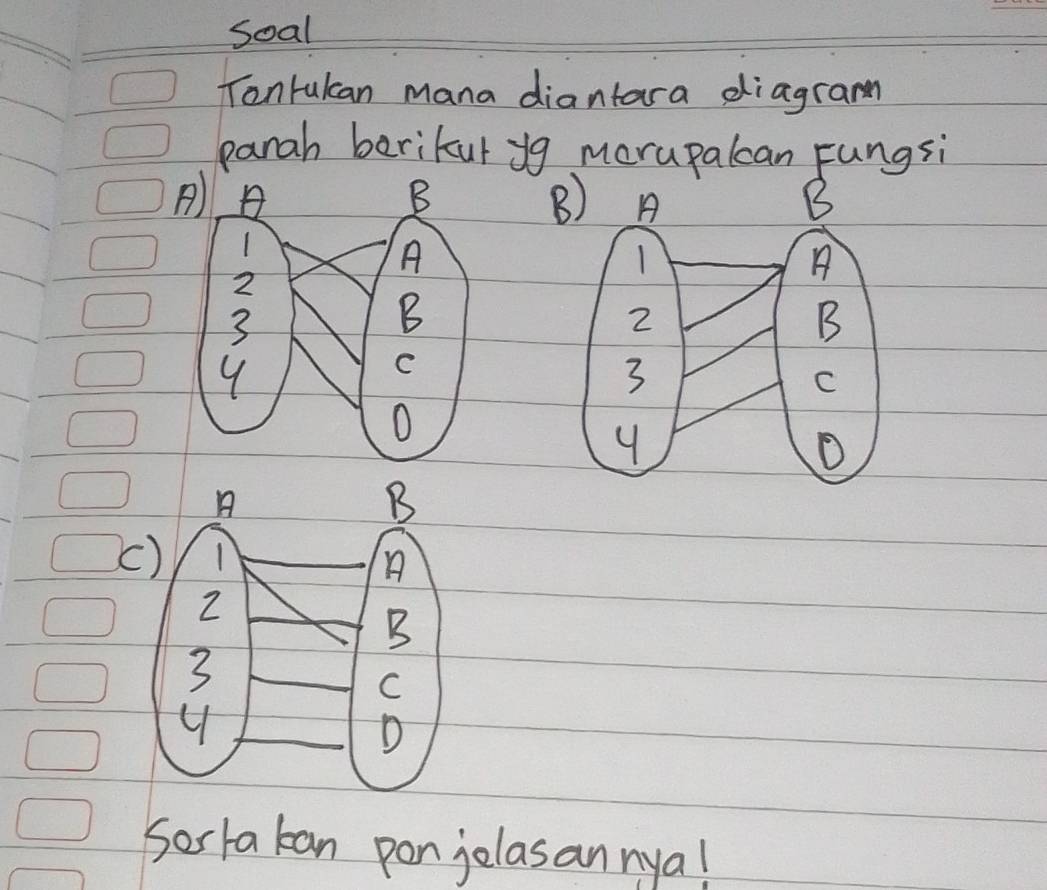 Soal
Tentukan mana diantara diagram
panah berikut yg merupakan Fungsi
A) A B B) A B
1 A 1 A
2 B 2 B
3 C 3 C
4 D 4 D
A B
C) 1 A
2 B
3 C
4 D
Sertakan penjelasannya!